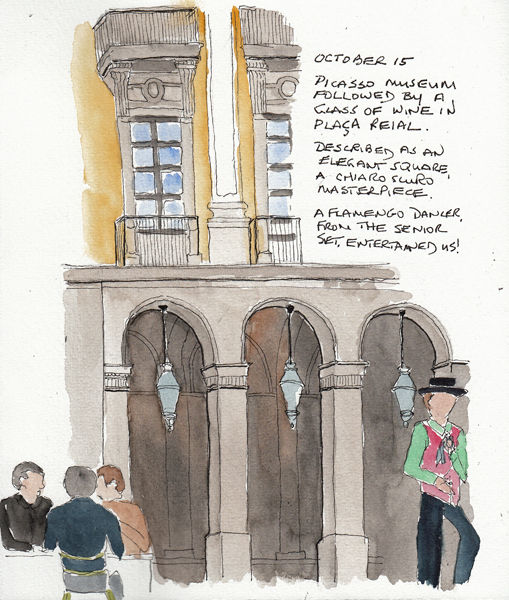 OCTOBER 15
PICASSO MUSEUM
FOLLOWED BY A
GLASS OF WINE IN
PLAÇA REIAL.
DESCRIBED AS AN
ELEGANT SQUARE,
A CHIAROSCURO
MASTERPIECE.
A FLAMENGO DANCER,
FROM THE SENIOR
SET, ENTERTAINED US!